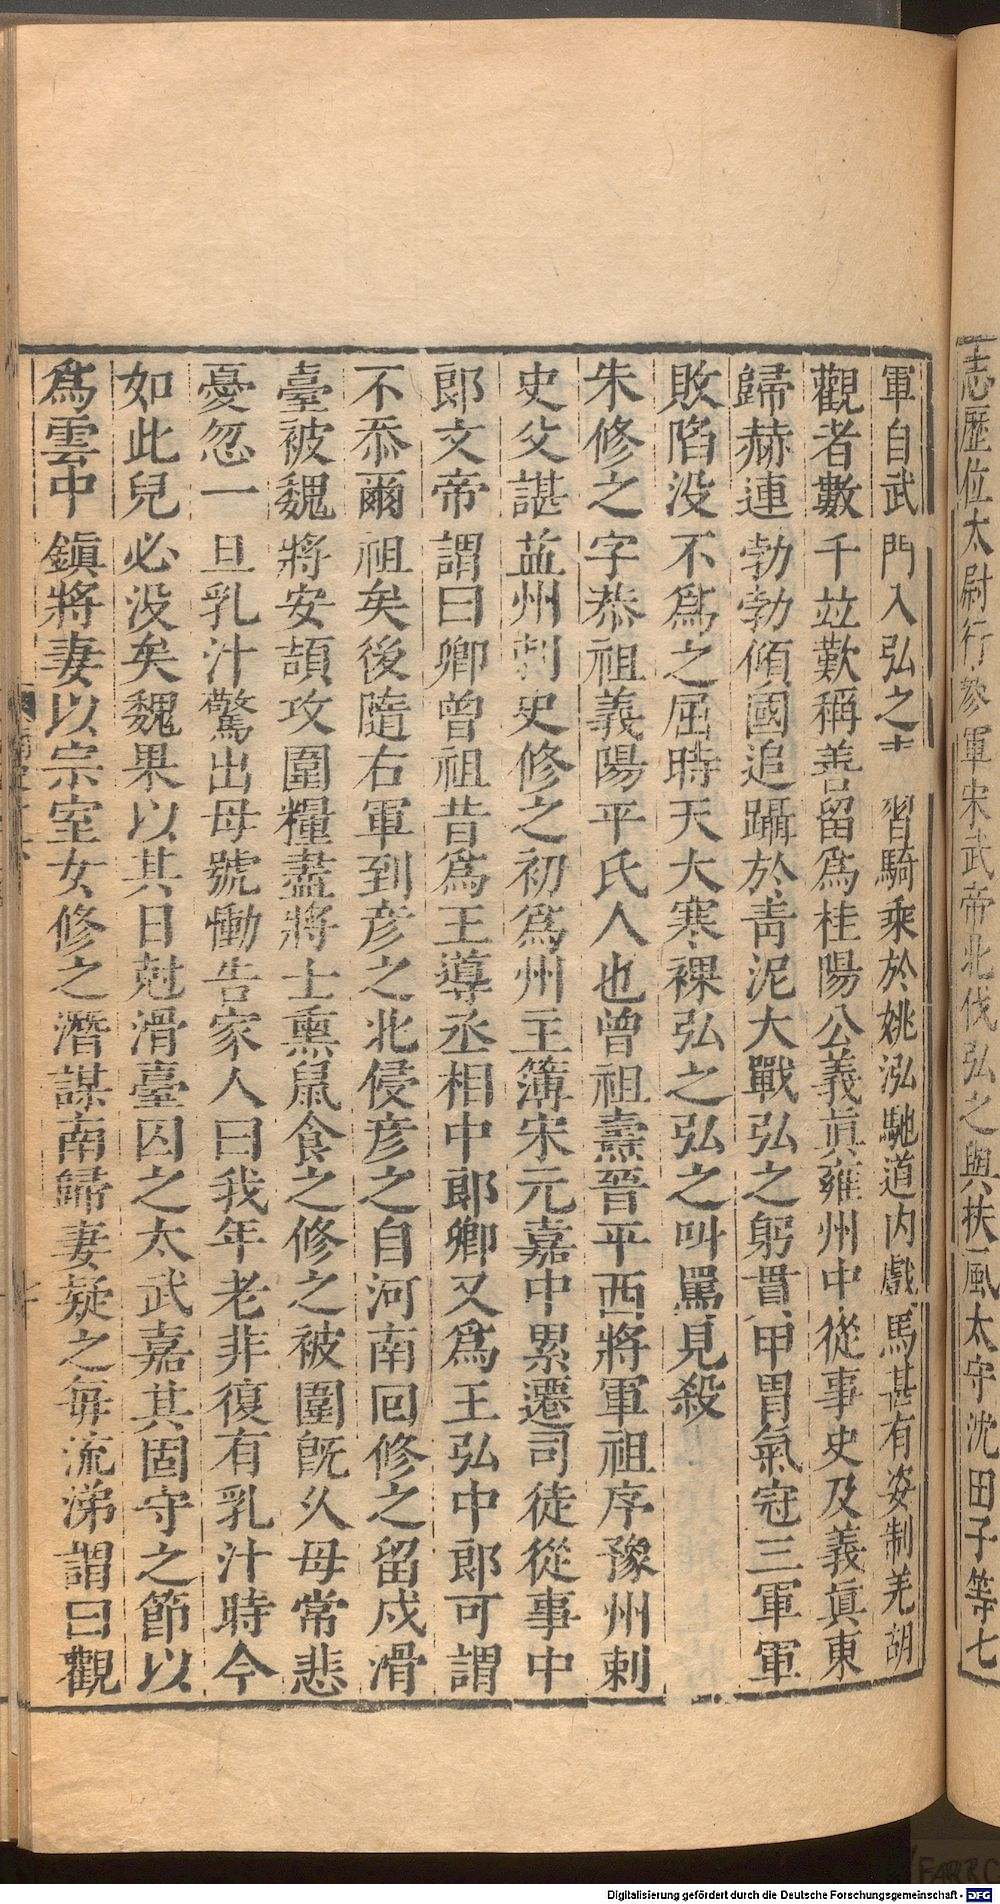 志歴位太尉行參軍宋武帝北伐弘之與扶風太守沈田子等七
軍自武門入弘之 習騎乘於姚泓馳道内戲馬甚有姿制羌胡
觀者數千竝歎稱善留爲桂陽公義眞雍州中從事史及義眞東
歸赫連勃勃傾國追躡於靑泥大戰弘之躬貫甲胄氣冠三軍軍
敗陷没不爲之屈時天大寒裸弘之弘之叫罵見殺
朱修之字恭祖義陽平氏人也曾祖燾晉平西將軍祖序豫州刺
史父諶益州刺史修之初爲州主簿宋元嘉中累遷司徒從事中
郎文帝謂曰卿曾祖昔爲王導丞相中郎卿又爲王弘中郎可謂
不忝爾祖矣後隨右軍到彦之北侵彦之自河南回修之留戍滑
臺被魏將安頡攻圍糧盡將士熏鼠食之修之被圍旣久母常悲
憂忽一旦乳汁驚出母號慟告家人曰我年老非復有乳汁時今
如此兒必没矣魏果以其日尅滑臺囚之太武嘉其固守之節以
爲雲中鎭將妻以宗室女修之潛謀南歸妻疑之每流涕謂曰觀
Digitalisierung gefördert durch die Deutsche Forschungsgemeinschaft - DFG